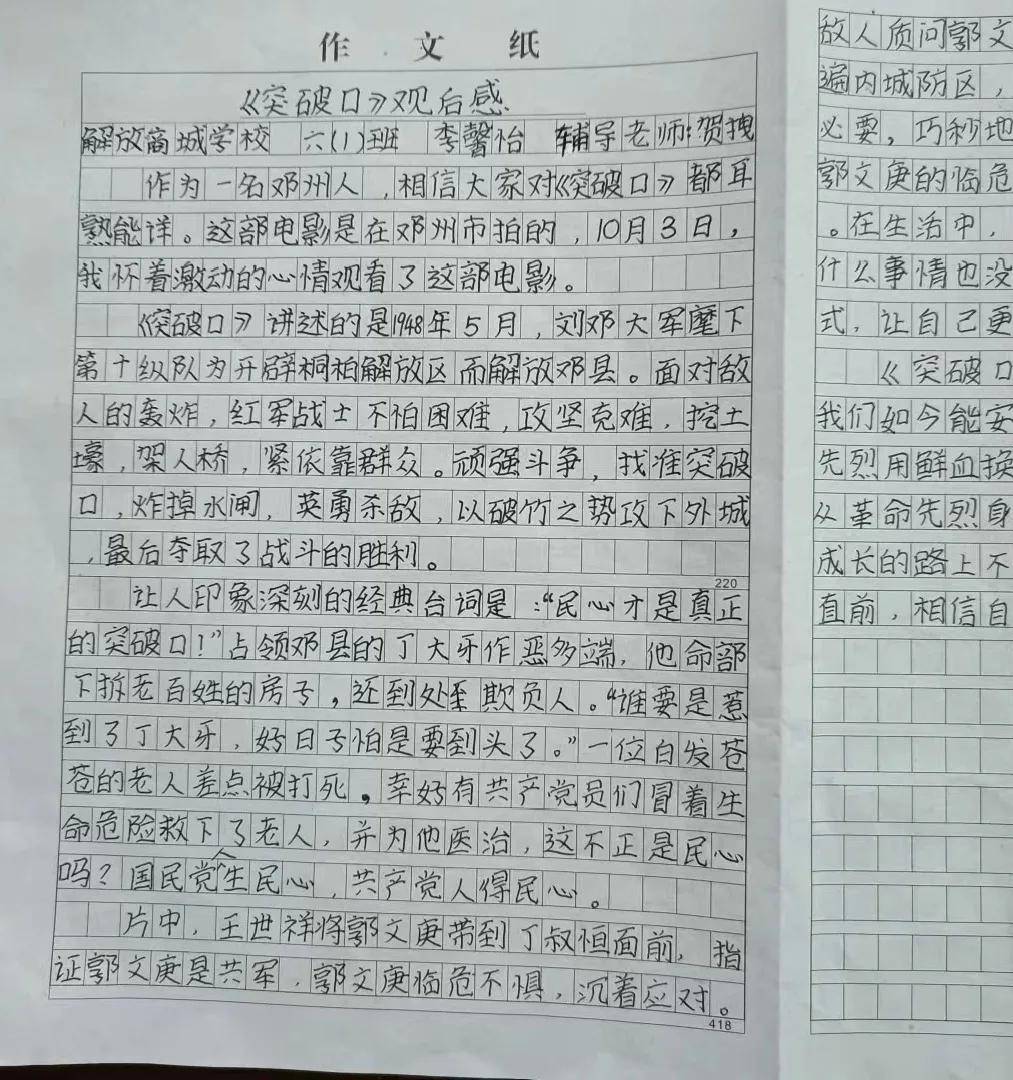 作文纸
《突破口》观后感
解放商城学校 六(1)班 李馨怡 辅导老师:贺拽
作为一名邓州人,相信大家对《突破口》都耳
熟能详。这部电影是在邓州市拍的,10月3日,
我怀着激动的心情观看了这部电影。
《突破口》讲述的是1948年5月,刘邓大军麾下
第十纵队为开辟桐柏解放区而解放邓县。面对敌
人的轰炸,红军战士不怕困难,攻坚克难,挖土
壕,架人桥,紧依靠群众。顽强斗争,找准突破
口,炸掉水闸,英勇杀敌,以破竹之势攻下外城
,最后夺取了战斗的胜利。
220
让人印象深刻的经典台词是:“民心才是真正
的突破口!”占领邓县的丁大牙作恶多端,他命部
下拆老百姓的房子,还到处至欺负人。“谁要是惹
到了丁大牙,好日子怕是要到头了。”一位白发苍
苍的老人差点被打死,幸好有共产党员们冒着生
命危险救下了老人,并为他医治,这不正是民心
吗?国民党人生民心,共产党人得民心。
片中,王世祥将郭文庚带到丁叔恒面前,指
证郭文庚是共军,郭文庚临危不惧,沉着应对。
418
敌人质问郭文
遍内城防区,
必要,巧秒地
郭文庚的临危
。在生活中,
什么事情也没
式,让自己更
《突破口
我们如今能安
先烈用鲜血换
从革命先烈身
成长的路上不
直前,相信自